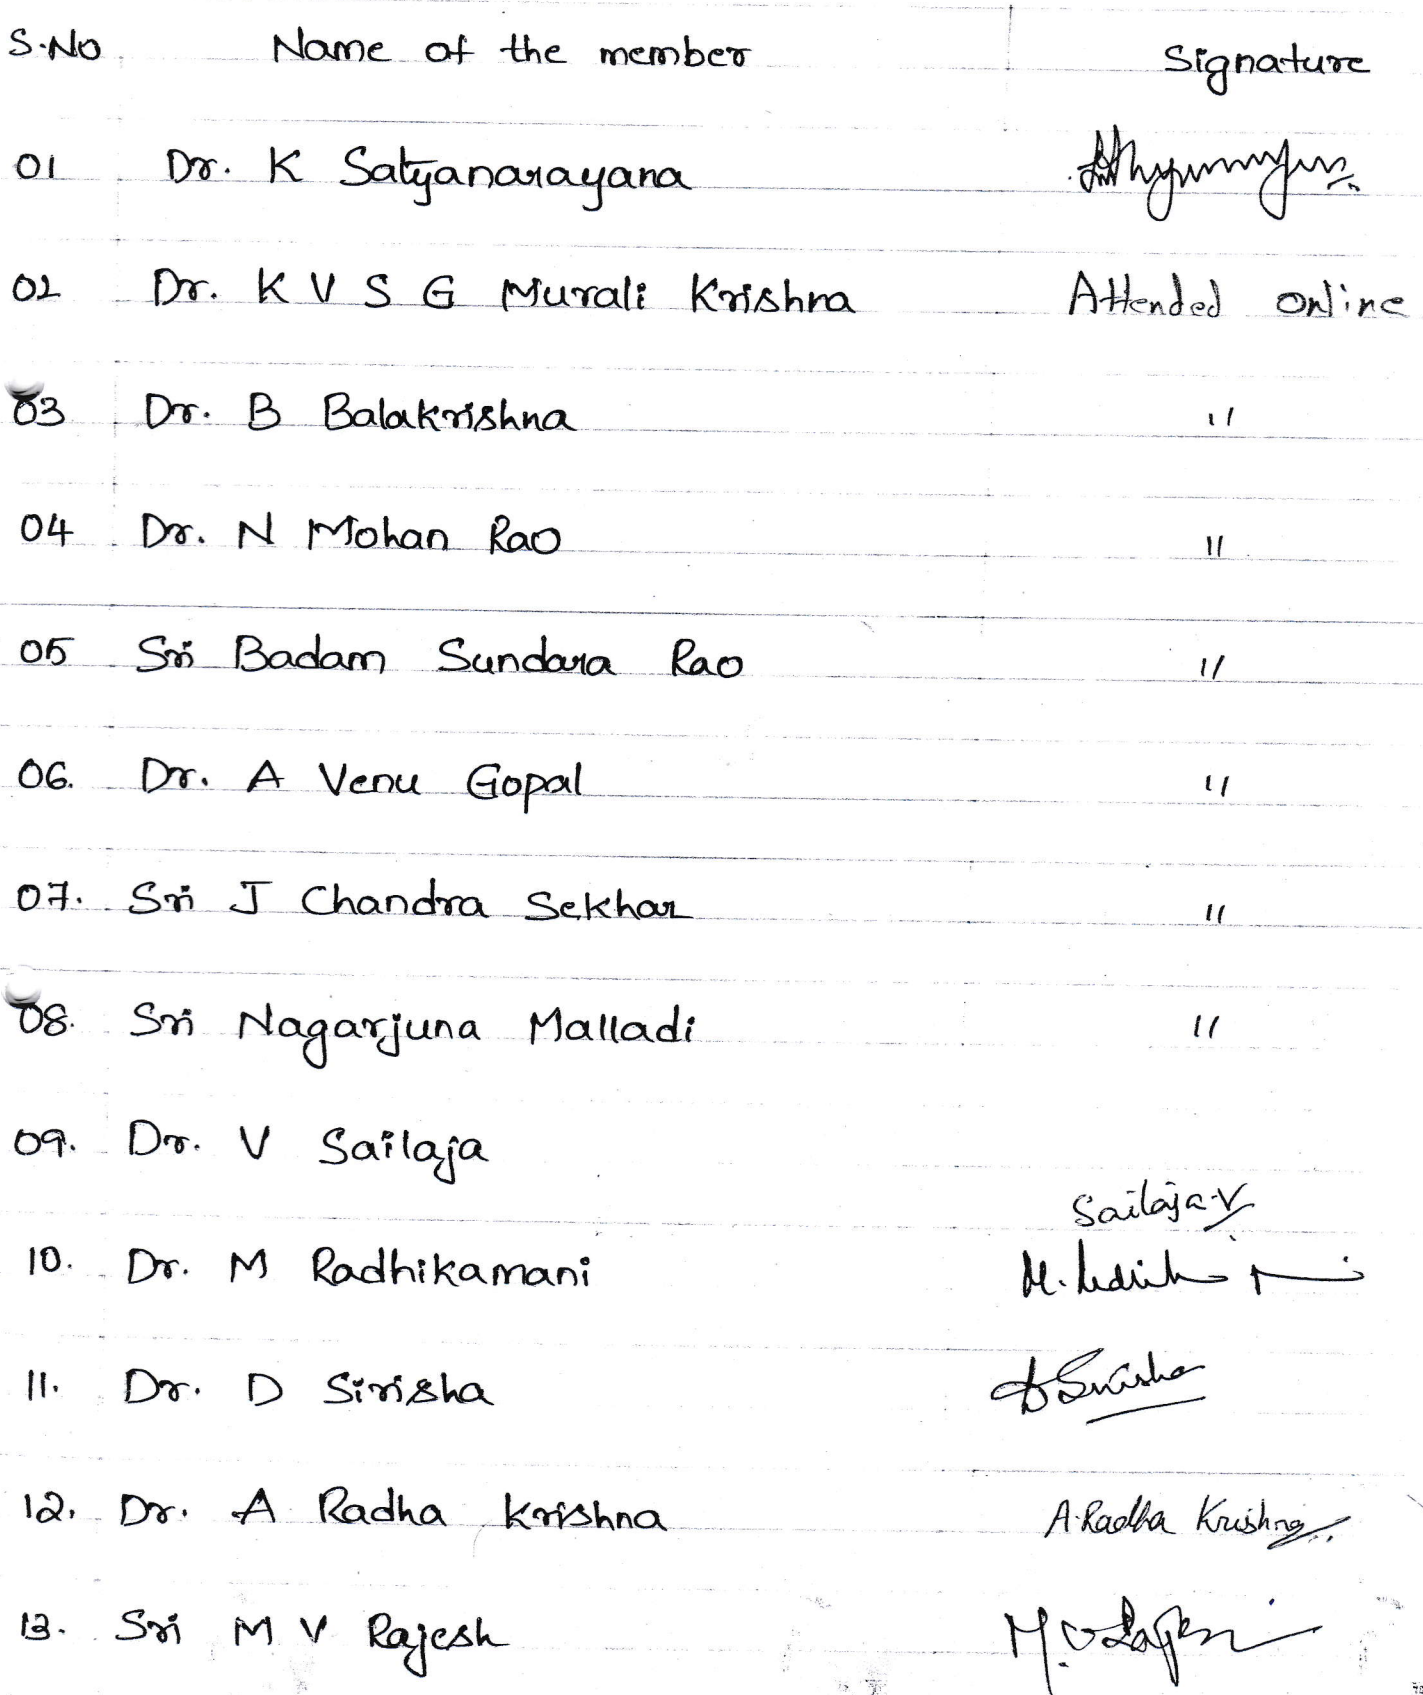 S.No Name of the member Signature
01 Dr. K Satyanarayana
02 Dr. K V S G Murali Krishna Attended online
03 Dr. B Balakrishna "
04 Dr. N Mohan Rao "
05 Sri Badam Sundara Rao "
06. Dr. A Venu Gopal "
07. Sri J Chandra Sekhar "
08. Sri Nagarjuna Malladi "
09. Dr. V Sailaja
Sailaja.V
10. Dr. M Radhikamani
11. Dr. D Sirisha D Sirisha
12. Dr. A Radha Krishna A.Radha Krishna
13. Sri M V Rajesh